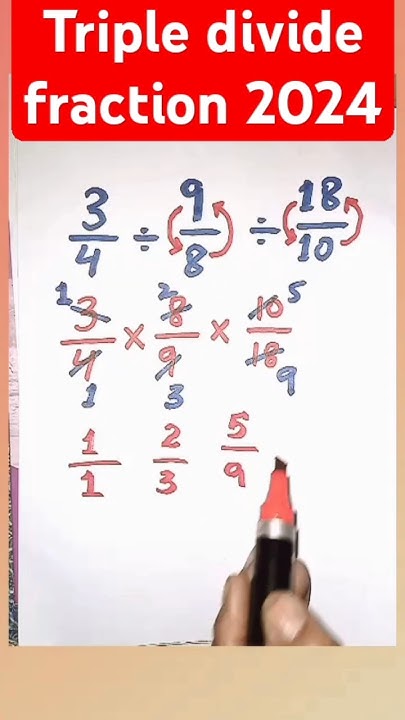 Triple divide
fraction 2024
3/4 ÷ 9/8 ÷ 18/10
1 3/4 1 × 2 8/9 3 × 10/18 5 9
1/1 2/3 5/9